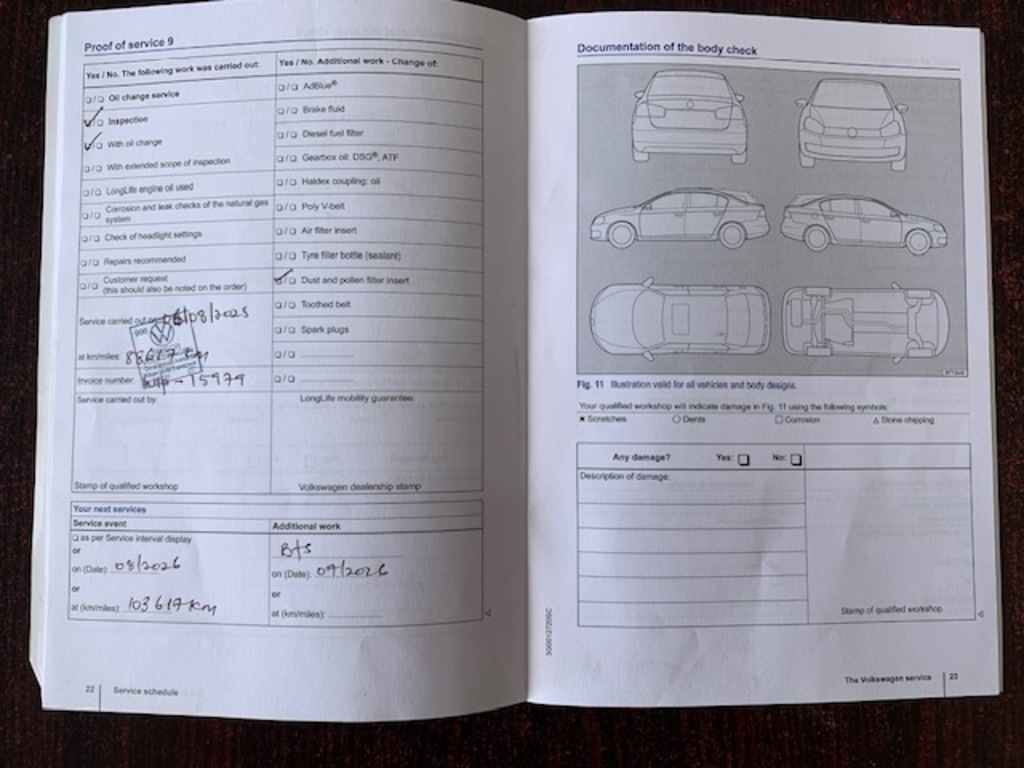 Proof of service 9
Yes / No. The following work was carried out:
❑/❑ Oil change service
❑/❑ Inspection
❑/❑ With oil change
❑/❑ With extended scope of inspection
❑/❑ LongLife engine oil used
❑/❑ Corrosion and leak checks of the natural gas
system
❑/❑ Check of headlight settings
❑/❑ Repairs recommended
❑/❑ Customer request
(this should also be noted on the order)
Service carried out 08/2025
at km/miles: km
Invoice number: - 15979
Service carried out by:
Stamp of qualified workshop
Yes / No. Additional work - Change of:
❑/❑ AdBlue®
❑/❑ Brake fluid
❑/❑ Diesel fuel filter
❑/❑ Gearbox oil: DSG®, ATF
❑/❑ Haldex coupling: oil
❑/❑ Poly V-belt
❑/❑ Air filter insert
❑/❑ Tyre filler bottle (sealant)
❑/❑ Dust and pollen filter insert
❑/❑ Toothed belt
❑/❑ Spark plugs
❑/❑ ....................
❑/❑ ....................
LongLife mobility guarantee:
Volkswagen dealership stamp
Your next services
Service event
❑ as per Service interval display
or
on (Date): 08/2026
or
at (km/miles): 103617 km
Additional work
on (Date): 09/2026
or
at (km/miles): ....................
22 Service schedule
Documentation of the body check
Fig. 11 Illustration valid for all vehicles and body designs.
Your qualified workshop will indicate damage in Fig. 11 using the following symbols:
✖ Scratches ○ Dents ☐ Corrosion △ Stone chipping
Any damage? Yes: ❑ No: ❑
Description of damage:
Stamp of qualified workshop
The Volkswagen service 23